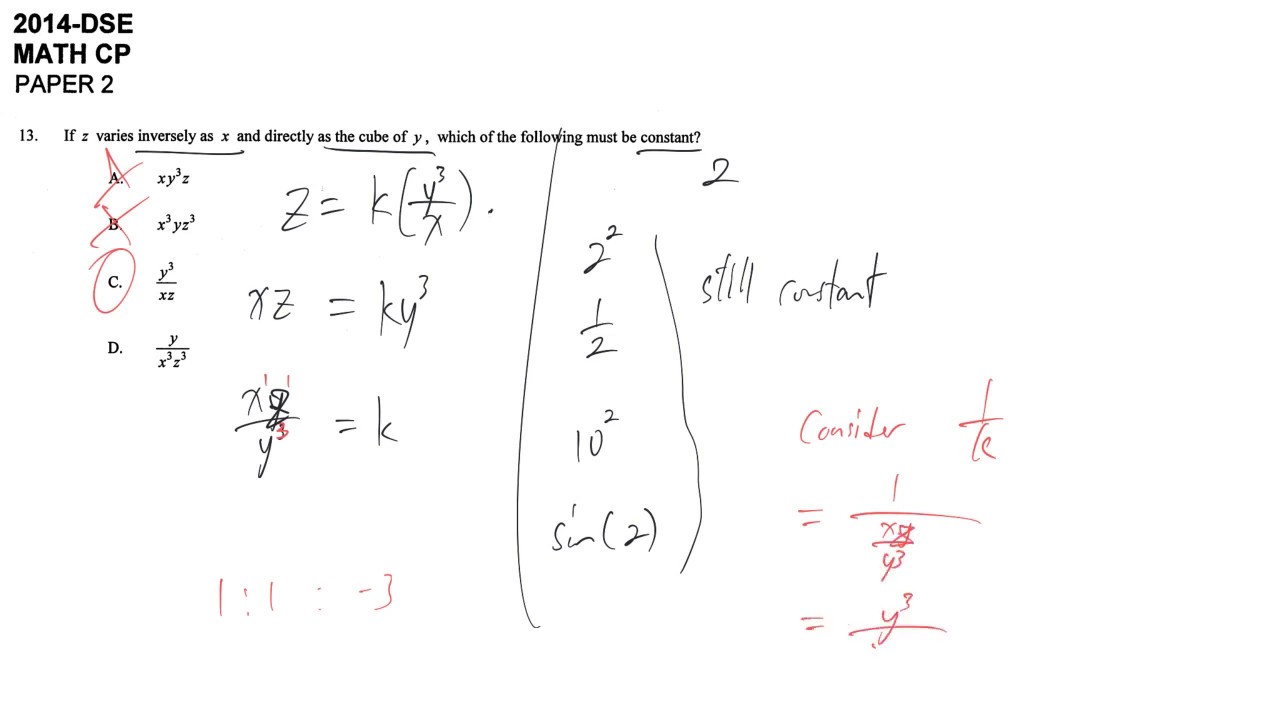 2014-DSE
MATH CP
PAPER 2
13. If z varies inversely as x and directly as the cube of y, which of the following must be constant?
A. xy³z
B. x³yz³
C. y³/xz
D. y/x³z³
z = k(y³/x).
xz = ky³
xz/y³ = k
1 1
1 : 1 : -3
2
2²
1/2
10²
sin(2)
still constant
Consider 1/k
= 1/(xz/y³)
= y³/